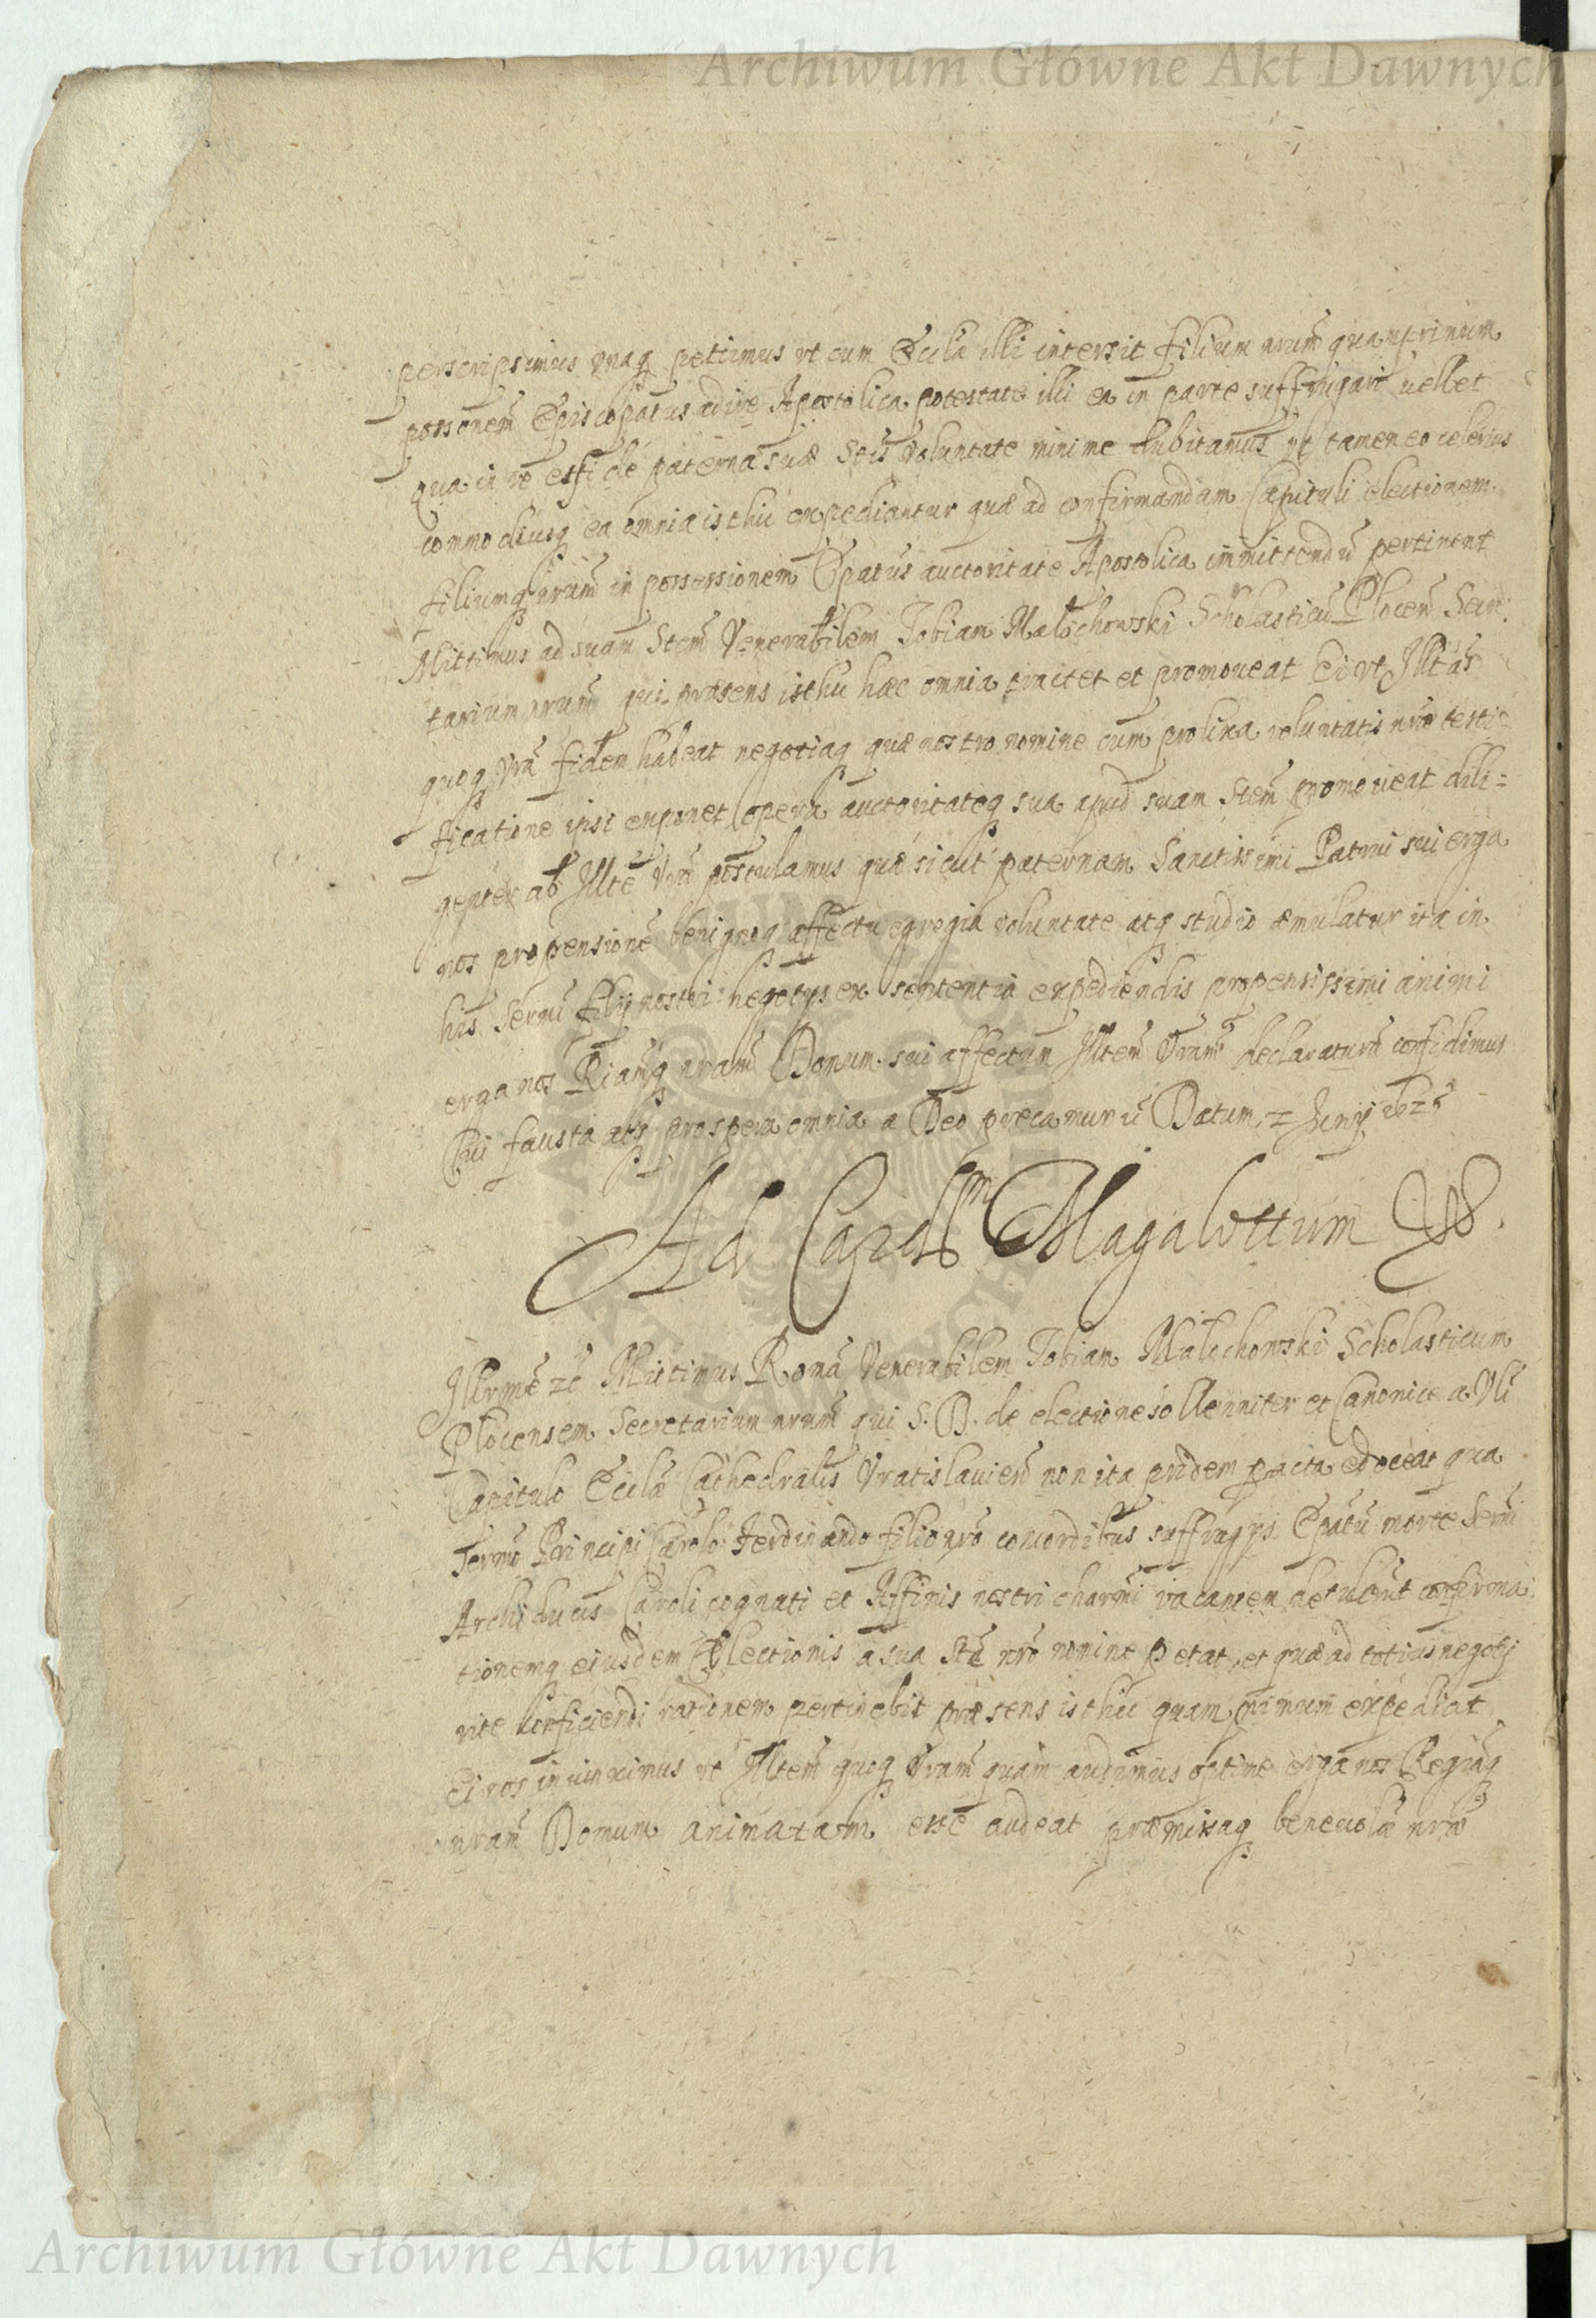 Archiwum Główne Akt Dawnych
perscripsimus vnaq petiimus vt cum Ecclæ illi intersit filium nrum quamprimum
possonem Episcopatus adire Apostolica potestate illi ea in parte suffragari uellet
qua in re etsi de paterna suæ Stis voluntate minime dubitamus vt tamen eo celerius
commodiusq ea omnia isthic expediantur quæ ad confirmandam Capituli electionem
filiumq nrum in possessionem Epatus auctoritate Apostolica immittendu pertinent
Mittimus ad suam Stem Venerabilem Tobiam Malochowski Scholasticu Plocen Secre
tarium nrum qui præsens isthic hæc omnia tractet et promoueat Ei vt Illtas
quoq Vra fidem habeat negotiaq quæ nostro nomine cum prolixa voluntatis nræ testi=
ficatione ipsi exponet opera auctoritateq sua apud suam Stem promoueat dili=
genter ab Illte Vra postulamus quæ sicut paternam Sanctissimi Patrui sui erga
nos propensione benignoq affectu egregia voluntate atq studio æmulatur ita in
his Sermi filij nostri negotys ex sententia expediendis propensissimi animi
erga nos Riamq nram Domum sui affectum Illtem Vram declaraturu confidimus
Cui fausta atq prospera omnia a Deo precamur Datum 2 Juny
Ad Cardlm Magalottum
Illrme Mittimus Roma Venerabilem Tobiam Malochowski Scholasticum
Plocensem Secretarium nrum qui S. B. de electione sollenniter et Canonice a Vli
Capitulo Ecclæ Cathedralis Vratislauien non ita pridem facta edoceat qua
Sermo Principi Carolo Ferdinando filio nro concordibus suffragys Epatu morte Sermi
Archiducis Caroli cognati et Affinis nostri charmi vacantem detulerut confirma
tionemq eiusdem Electionis a sua Ste nro nomine petat, et quæ ad totius negotij
rite conficiendi rationem pertinebit præsens isthic quam primum expediat
Ei nos iniunximus vt Illtem quoq Vram quam audimus optime erga nos Regiamq
nram Domum animatam esse audeat præmissaq beneuolæ nræ
Archiwum Główne Akt Dawnych